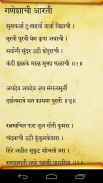 गणेशाची आरती
सुखकर्ता दु:खहर्ता वार्ता विघ्नाची ।
नुरवी पुरवी प्रेम कृपा जयाची ।
सर्वांगी सुंदर उटी शेंदुराची ।
कंठी झळके माळ मुक्ता फळाची ॥
जयदेव जयदेव जय मंगलमूर्ती ।
दर्शनमात्रे मन
रत्नखचित फरा तुज गौरी कुमरा ।
चंदनाची उटी कुंकुमकेशरा ।
हिरे जडीत मुकुट शोभतो बरा ।